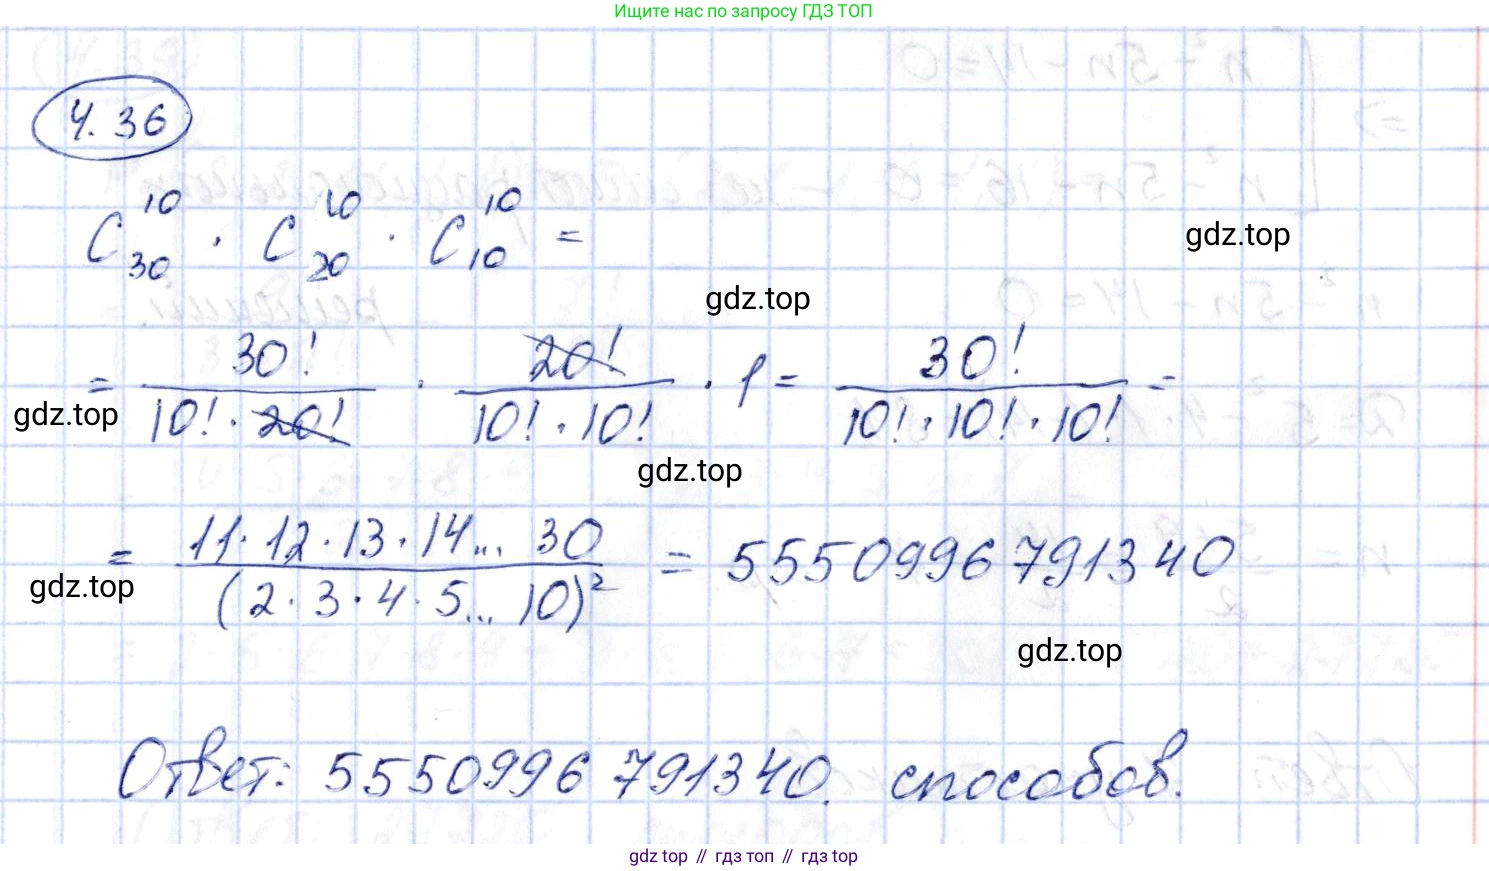 Ищите нас по запросу ГДЗ ТОП
4.36
C₃₀¹⁰ · C₂₀¹⁰ · C₁₀¹⁰ =
gdz.top
gdz.top
= 30! / (10! · 20!) · 20! / (10! · 10!) · 1 = 30! / (10! · 10! · 10!) =
gdz.top
gdz.top
= 11 · 12 · 13 · 14 ... 30 / (2 · 3 · 4 · 5 ... 10)² = 5550996791340
gdz.top
gdz.top
Ответ: 5550996791340. способов.
gdz.top // гдз топ // гдз top